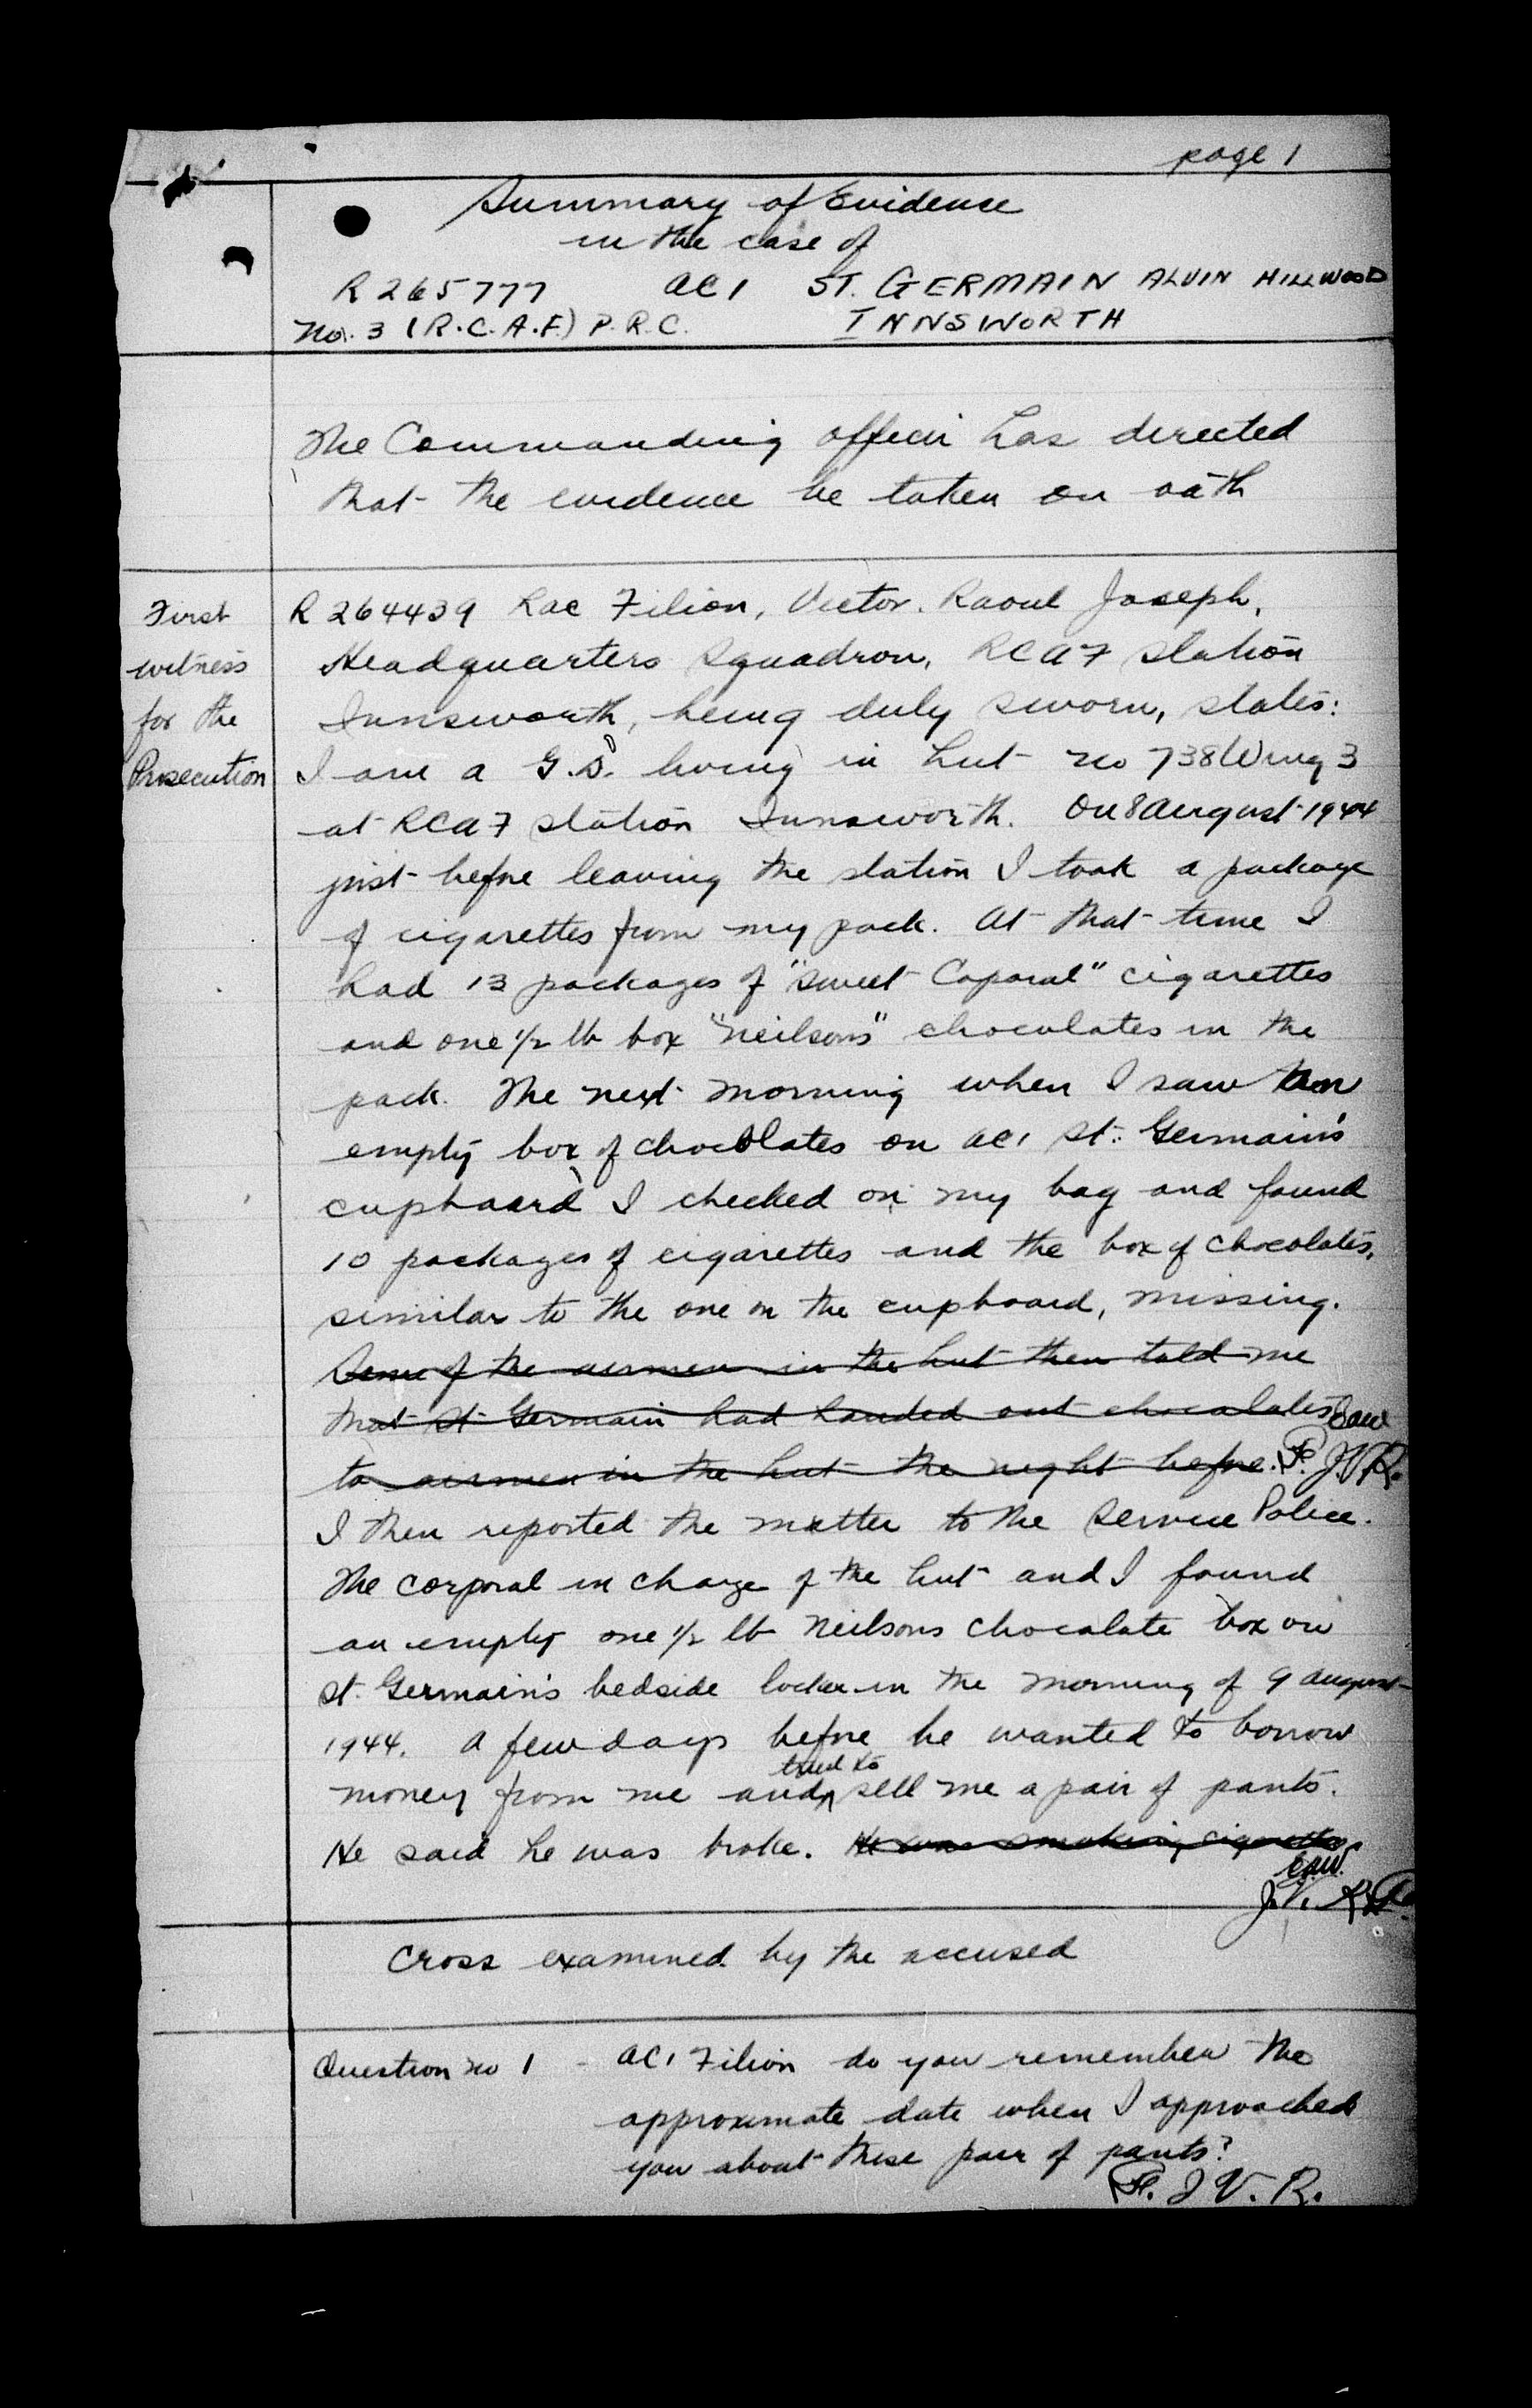 page 1
Summary of Evidence
in the case of
R 265777 AC1 ST. GERMAIN ALVIN HILLWOOD
No. 3 (R.C.A.F.) P.R.C. INNSWORTH
The Commanding officer has directed
that the evidence be taken on oath
First
witness
for the
Prosecution
R 264439 Filion, Victor. Raoul Joseph,
Headquarters Squadron, RCAF station
Innsworth, being duly sworn, states:
I am a G.D. living in hut no 738 Wing 3
at RCAF station Innsworth. On 8 August 1944
just before leaving the station I took a package
of cigarettes from my pack. At that time I
had 13 packages of "Sweet Caporal" cigarettes
and one 1/2 lb box "Neilsons" chocolates in the
pack. The next morning when I saw an
empty box of chocolates on AC1 St. Germain's
cupboard I checked on my bag and found
10 packages of cigarettes and the box of chocolates,
similar to the one on the cupboard, missing.
Some of the airmen in the hut then told me
that St Germain had handed out chocolates
to airmen in the hut the night before. F. J.V.R.
I then reported the matter to the Service Police.
The corporal in charge of the hut and I found
an empty one 1/2 lb Neilsons chocolate box on
St. Germain's bedside locker in the morning of 9 August
1944. A few days before he wanted to borrow
tried to
money from me and sell me a pair of pants.
He said he was broke. He was smoking cigarettes
J.V.R.
Cross examined by the accused
Question no 1 - AC1 Filion do you remember the
approximate date when I approached
you about these pair of pants?
F. J. V. R.